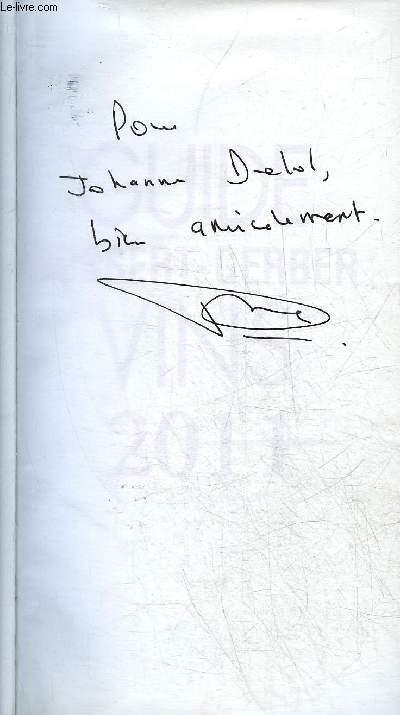 Le-livre.com
Pour
Johanna
bien amicalement.
GUIDE
GERBER
VINS
2011